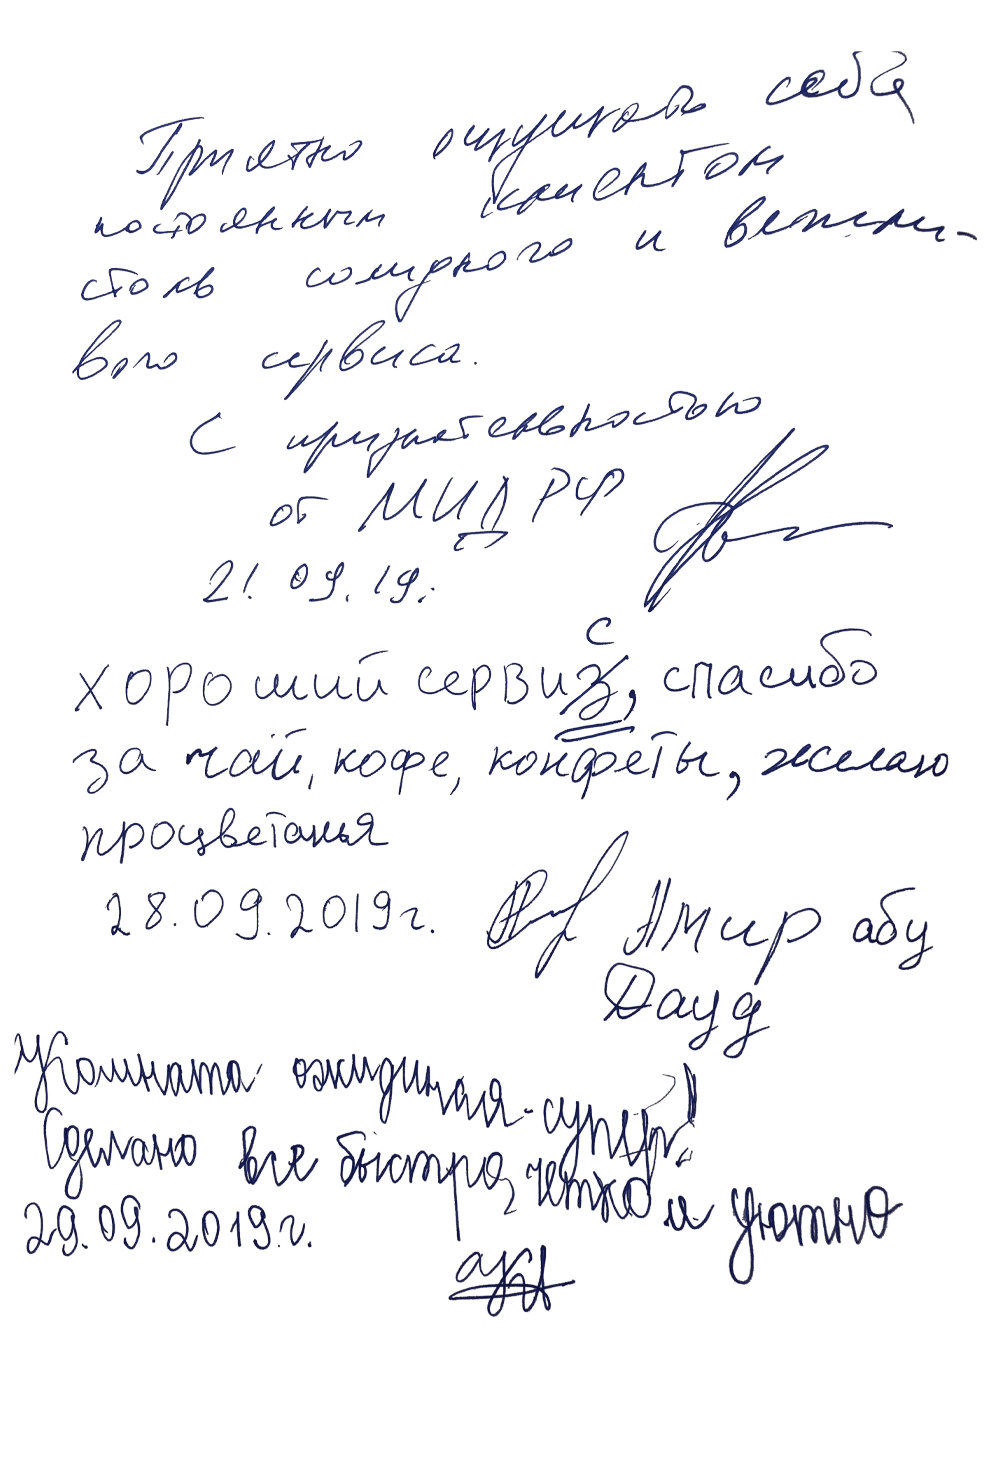 Приятно ощущать себя
постоянным клиентом
столь солидного и вежли-
вого сервиса.
С признательностью
от МИД РФ
21.09.19.
с
хороший сервиз, спасибо
за чай, кофе, конфеты, желаю
процветанья
28.09.2019г. Амир абу
Дауд
Комната ожидиная-супер!
Сделано все быстро, четко и уютно
29.09.2019г.